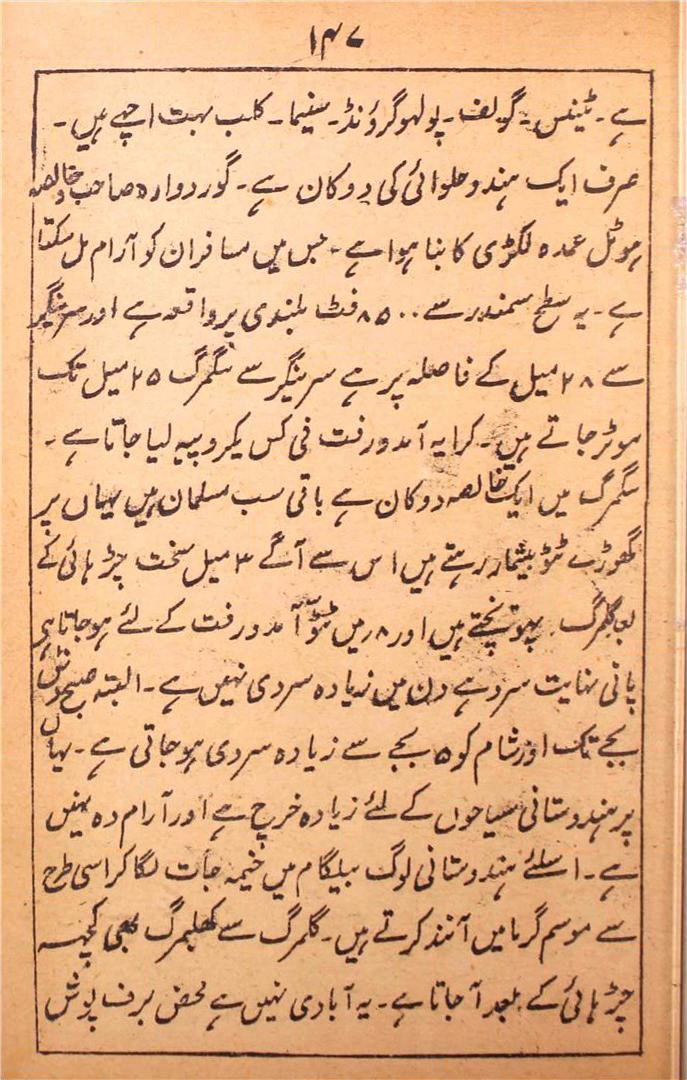 ۱۴۷
ہے۔ ٹینس۔ گولف۔ پولوگروئنڈ۔ سنیما۔ کلب بہت اچھے ہیں۔
صرف ایک ہندو حلوائی کی دوکان ہے۔ گوردوارہ صاحب خالصہ
ہوٹل عمدہ لکڑی کا بنا ہوا ہے۔ جس میں مسافران کو آرام مل سکتا
ہے۔ یہ سطح سمندر سے ۸۵۰۰ فٹ بلندی پر واقعہ ہے اور سرینگر
سے ۲۸ میل کے فاصلہ پر ہے سرینگر سے ٹنگمرگ ۲۵ میل تک
موٹر جاتے ہیں۔ کرایہ آمدورفت فی کس یکروپیہ لیا جاتا ہے۔
ٹنگمرگ میں ایک خالصہ دوکان ہے باقی سب مسلمان ہیں یہاں پر
گھوڑے ٹٹو بیشمار رہتے ہیں اس سے آگے ۳ میل سخت چڑہائی کے
بعد گلمرگ پہونچتے ہیں اور ۸ر میں ٹٹو آمدورفت کے لئے ہوجاتا ہی
پانی نہایت سرد ہے دن میں زیادہ سردی نہیں ہے۔ البتہ صبح دش
بجے تک اور شام کو ۵ بجے سے زیادہ سردی ہوجاتی ہے۔ یہاں
پر ہندوستانی سیاحوں کے لئے زیادہ خرچ ہے اور آرام دہ نہیں
ہے۔ اسلئے ہندوستانی لوگ پہلگام میں خیمہ جات لگا کر اسی طرح
سے موسم گرما میں آنند کرتے ہیں۔ گلمرگ سے کھلمرگ بھی کچہہ
چڑہائی کے بعد آجاتا ہے۔ یہ آبادی نہیں ہے محض برف پوش